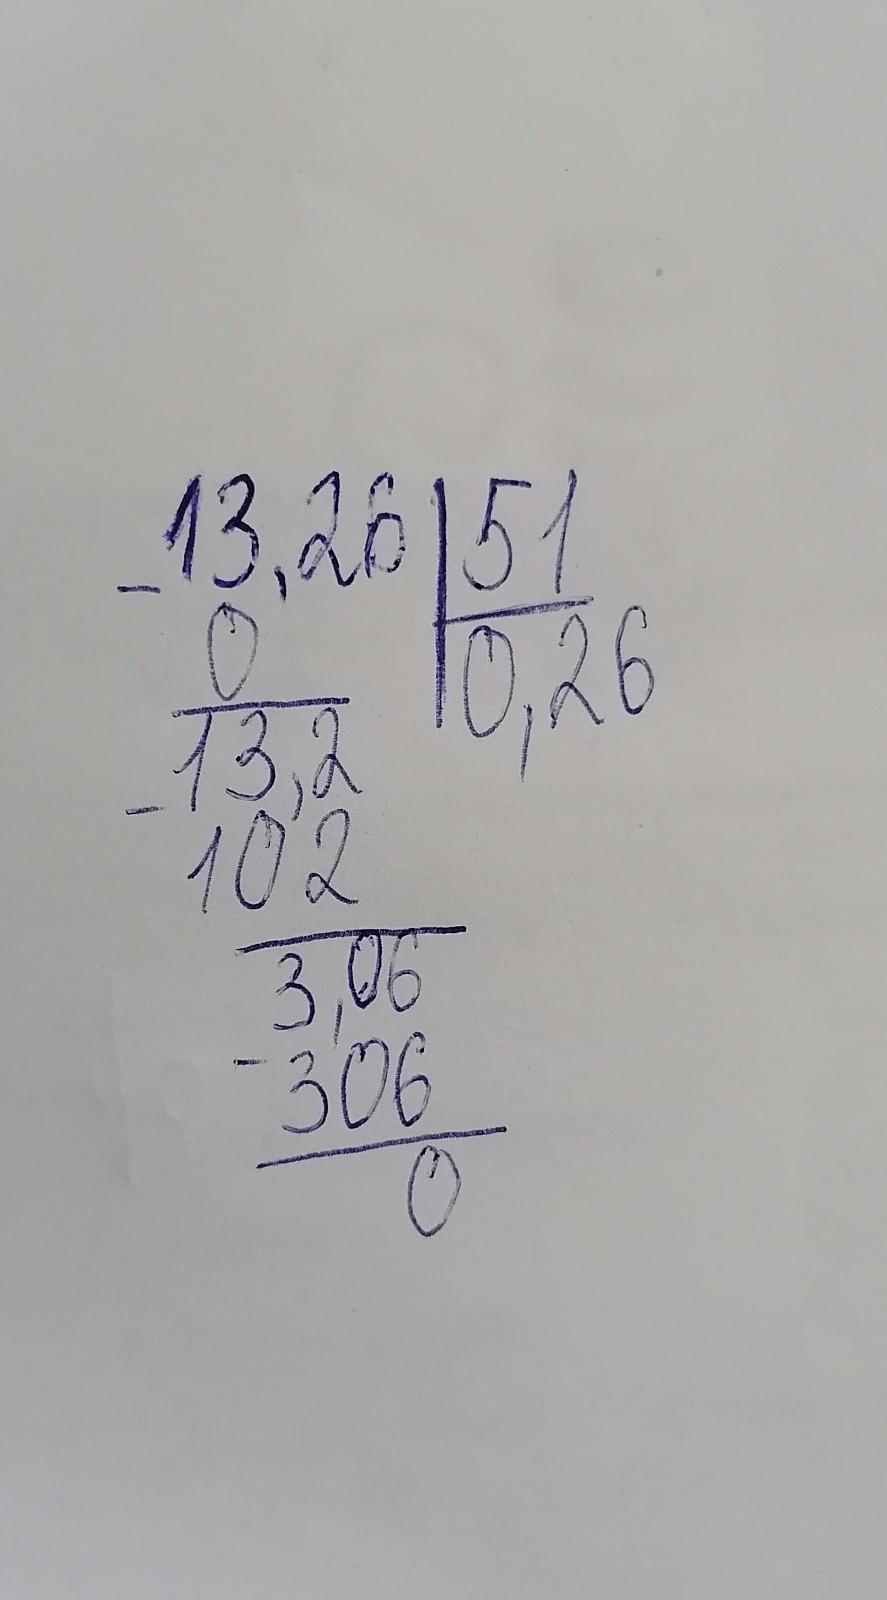 -13,26 | 51
0 0,26
-13,2
102
3,06
-306
0